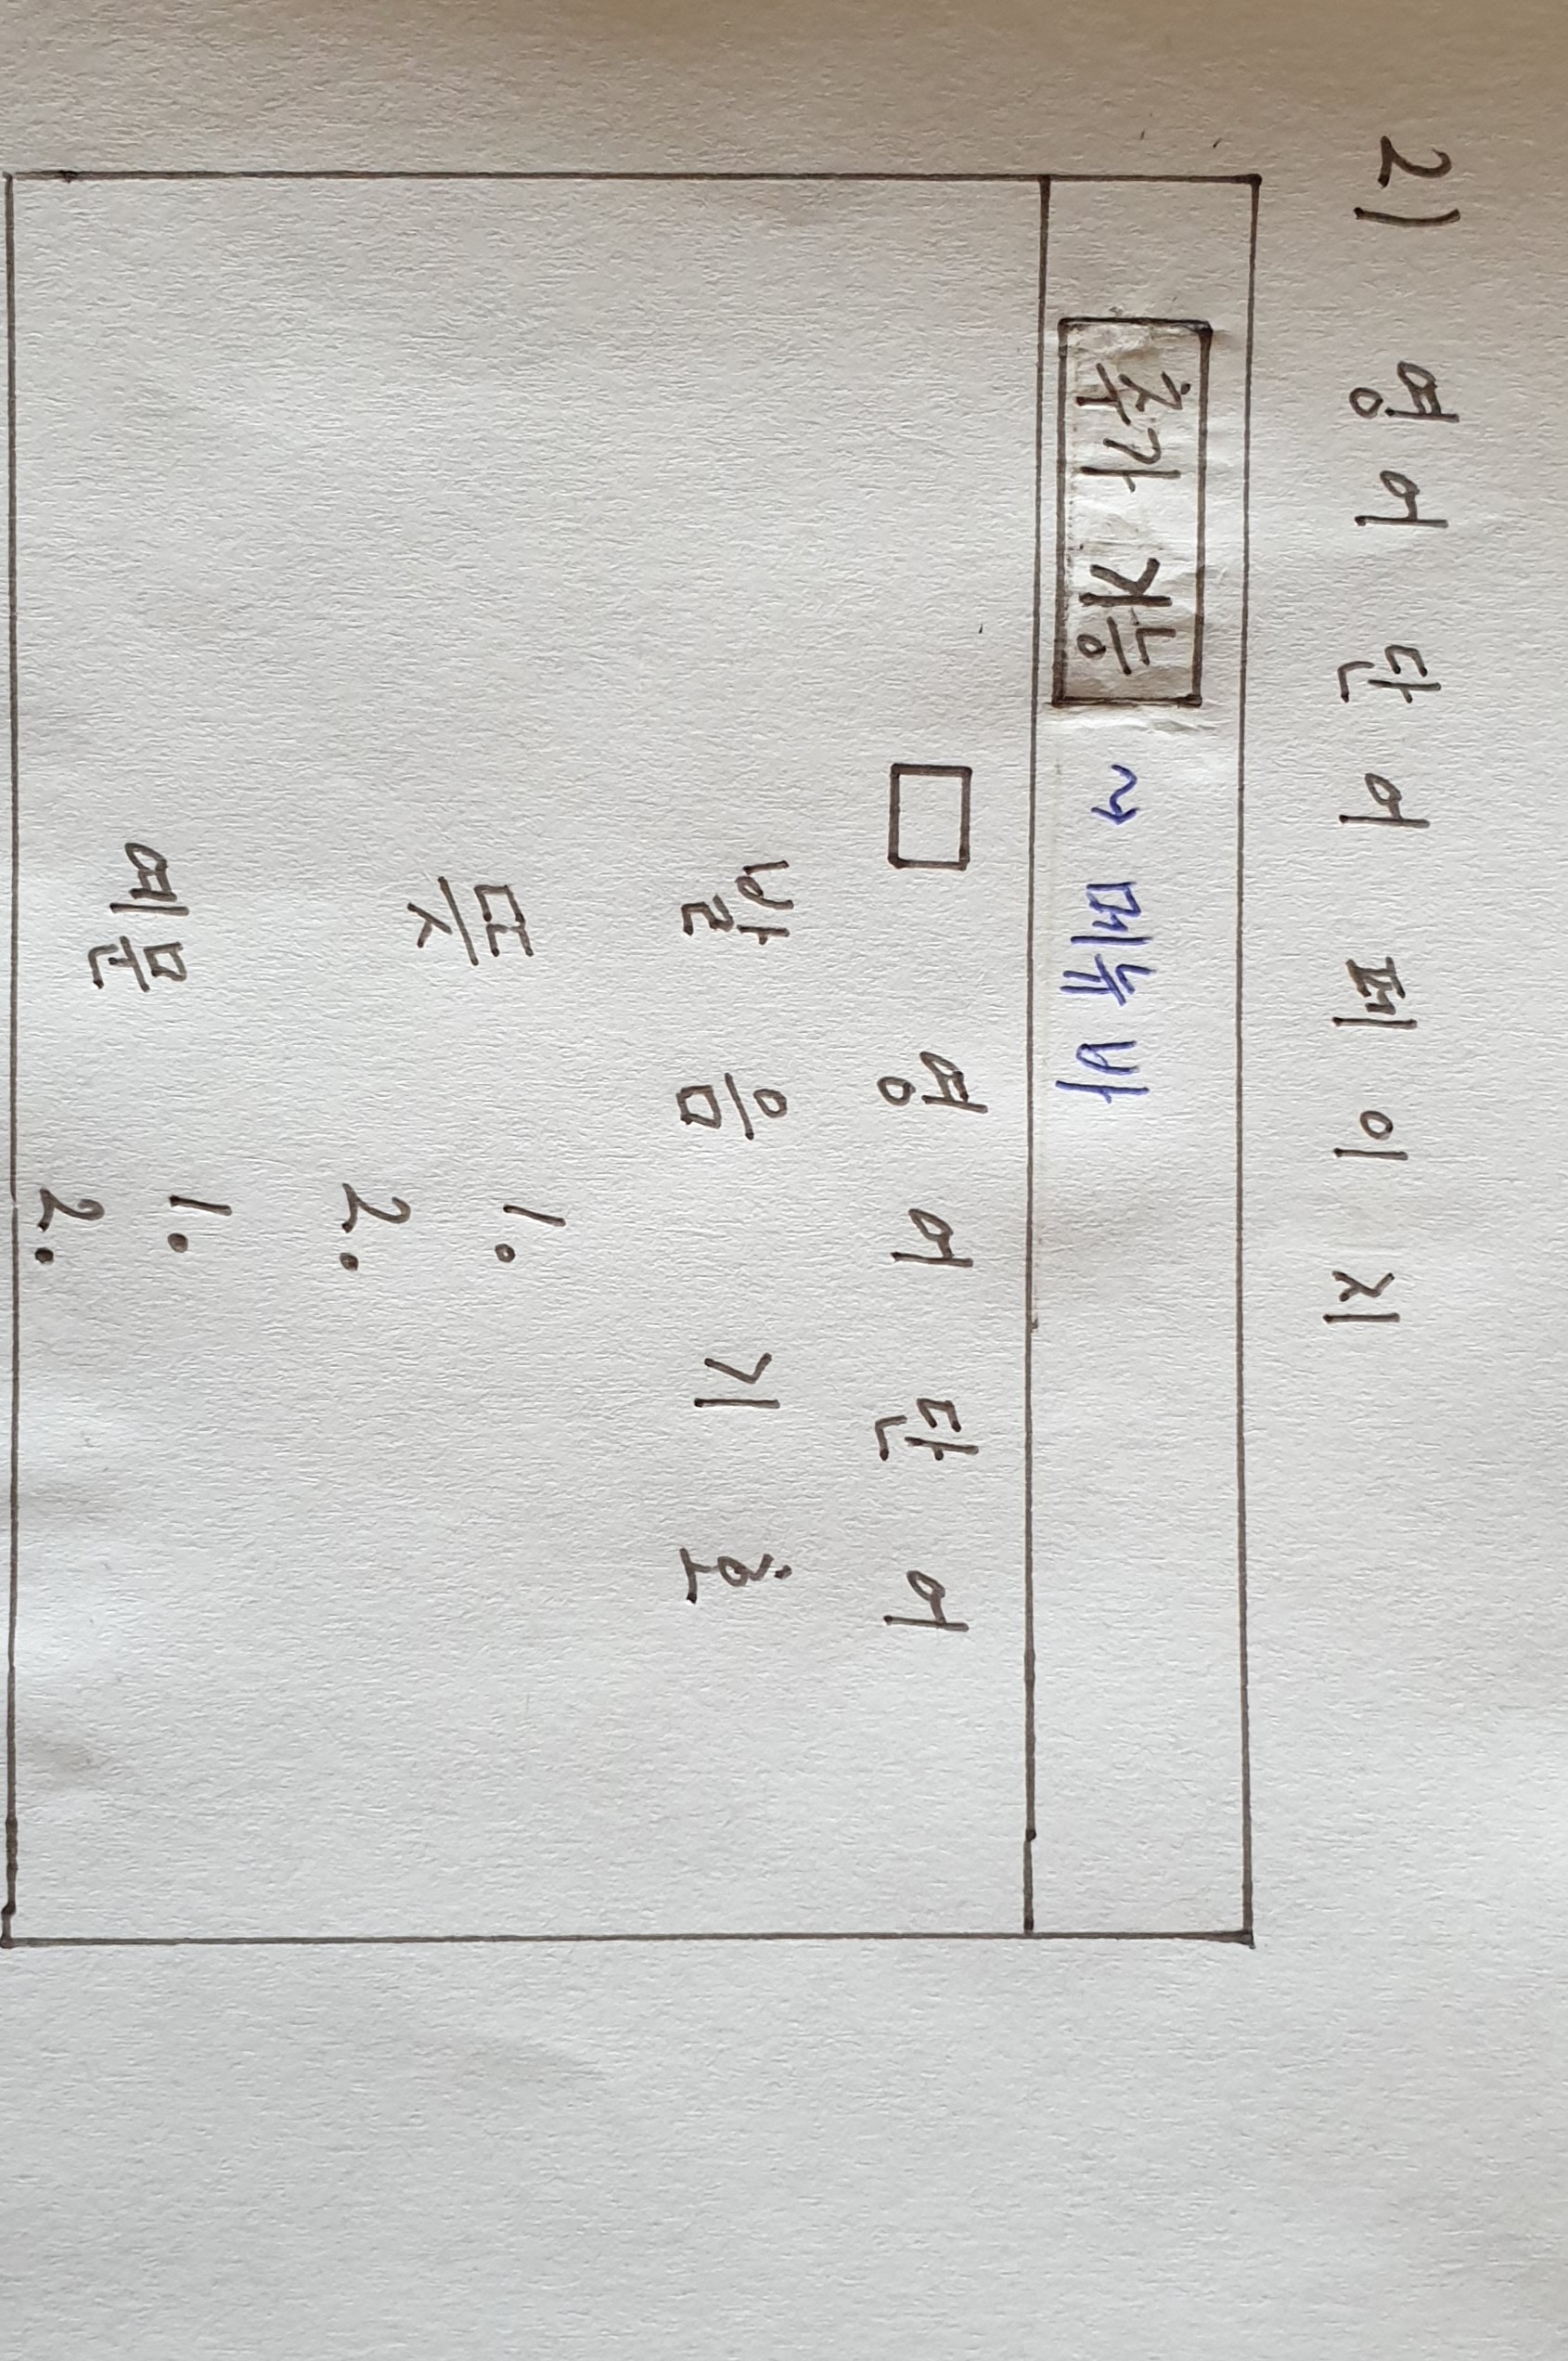 2) 영어 단어 페이지
추가 기능 ~> 메뉴 바
영어 단어
발음 기호
뜻 1.
2.
예문 1.
2.